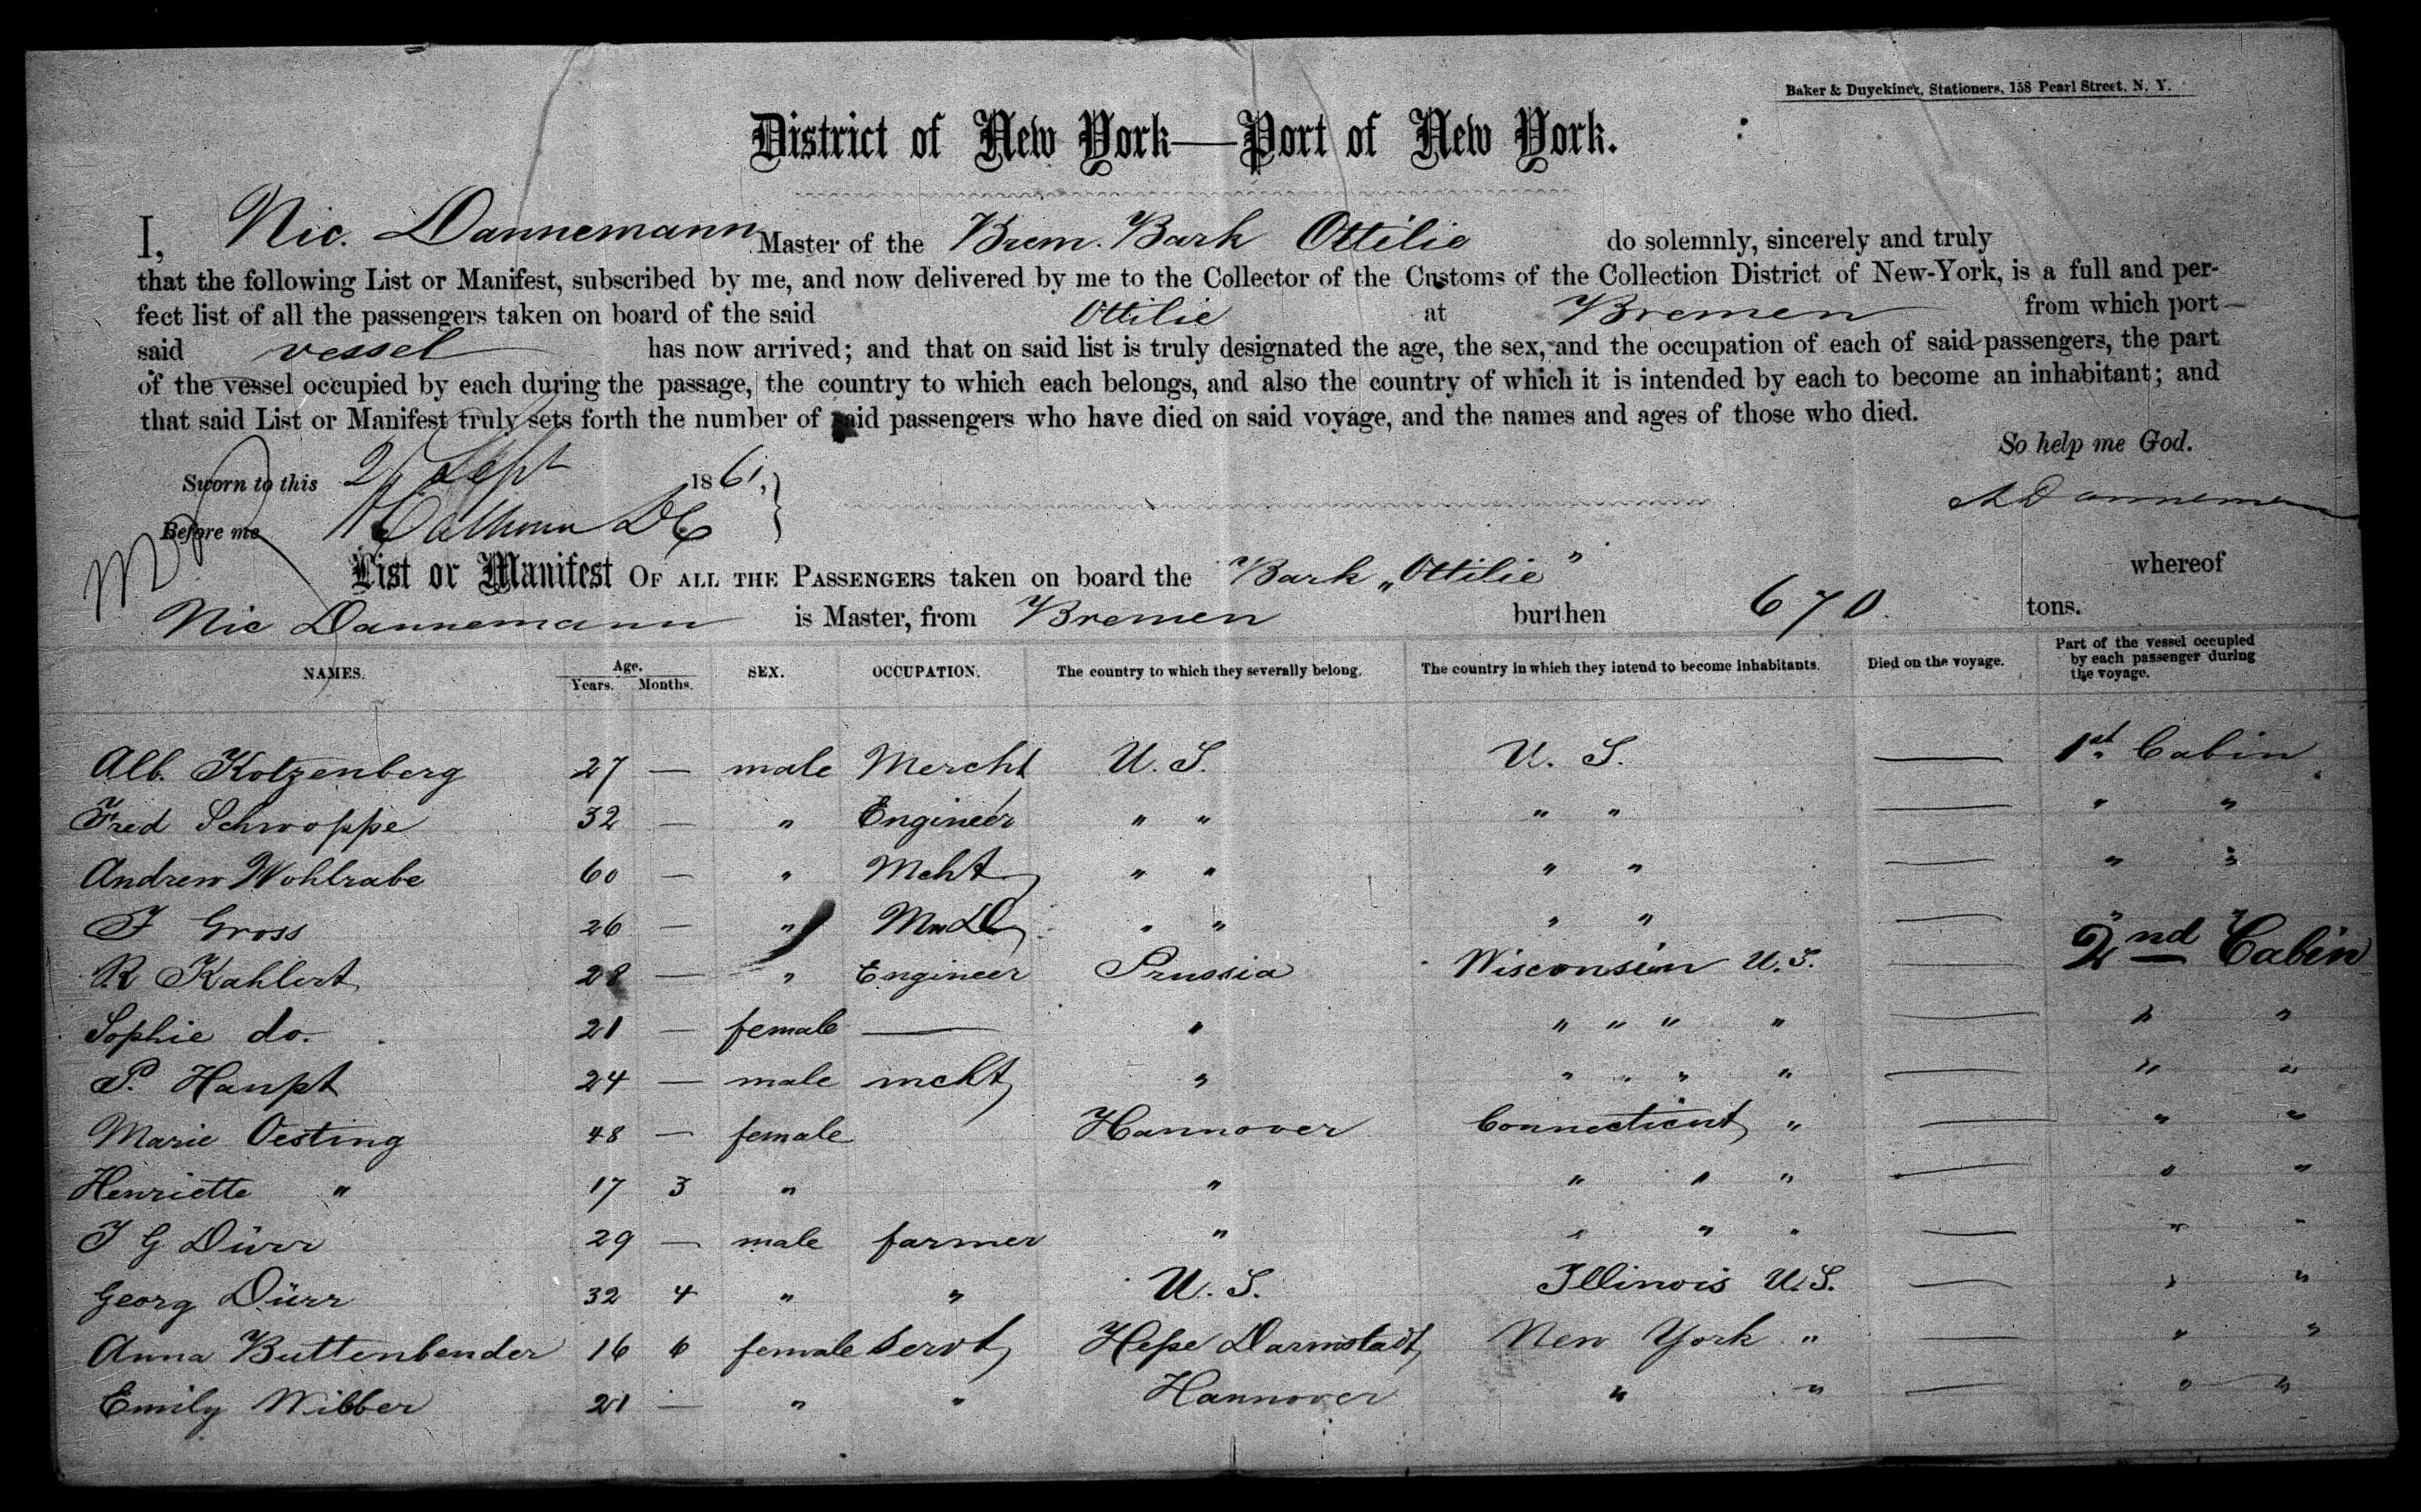 Baker & Duyckinck, Stationers, 158 Pearl Street, N. Y.
District of New York—Port of New York.
I, Nic. Dannemann Master of the Brem. Bark Ottilie do solemnly, sincerely and truly
that the following List or Manifest, subscribed by me, and now delivered by me to the Collector of the Customs of the Collection District of New-York, is a full and per-
fect list of all the passengers taken on board of the said Ottilie at Bremen from which port
said vessel has now arrived; and that on said list is truly designated the age, the sex, and the occupation of each of said passengers, the part
of the vessel occupied by each during the passage, the country to which each belongs, and also the country of which it is intended by each to become an inhabitant; and
that said List or Manifest truly sets forth the number of said passengers who have died on said voyage, and the names and ages of those who died.
So help me God.
Sworn to this Sept 1861,
Before me Calhoun DC
Dannemann
List or Manifest OF ALL THE PASSENGERS taken on board the Bark „Ottilie" whereof
Nic Dannemann is Master, from Bremen burthen 670 tons.
NAMES. Age. Years. Months. SEX. OCCUPATION. The country to which they severally belong. The country in which they intend to become inhabitants. Died on the voyage. Part of the vessel occupied by each passenger during the voyage.
Alb. Kotzenberg 27 — male Mercht U. S. U. S. — 1st Cabin
Fred Schwoppe 32 — " Engineer " " " " — " "
Andrew Wohlrabe 60 — " Mcht " " " " — " "
F Gross 26 — " " " " " — " "
R Kahlert 28 — " Engineer Prussia Wisconsin U. S. — 2nd Cabin
Sophie do. 21 — female — " " " " " — " "
P. Haupt 24 — male mcht " " " " " — " "
Marie Oesting 48 — female Hannover Connecticut " — " "
Henriette " 17 3 " " " " " — " "
J G Dürr 29 — male farmer " " " " — " "
Georg Dürr 32 4 " " U. S. Illinois U. S. — " "
Anna Buttenbender 16 6 female Servt Hesse Darmstadt New York " — " "
Emily Wibber 21 — " " Hannover " " — " "